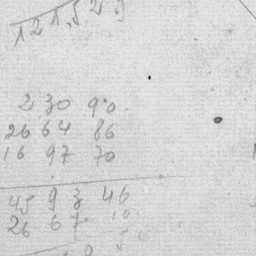 121,529
2 30 90
26 64 86
16 97 70
45 93 46
26 67 10